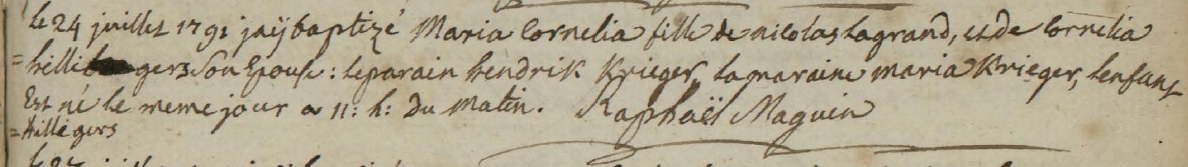 le 24 juillet 1791 jaÿ baptizé Maria Cornelia fille de nicolas Lagrand, et de Cornelia
= hilligers Son Epouse : le parain hendrik Krieger, la maraine maria Krieger, lenfant
Est né le meme jour a 11: h: du matin. Raphaël Maguin
= hilligers